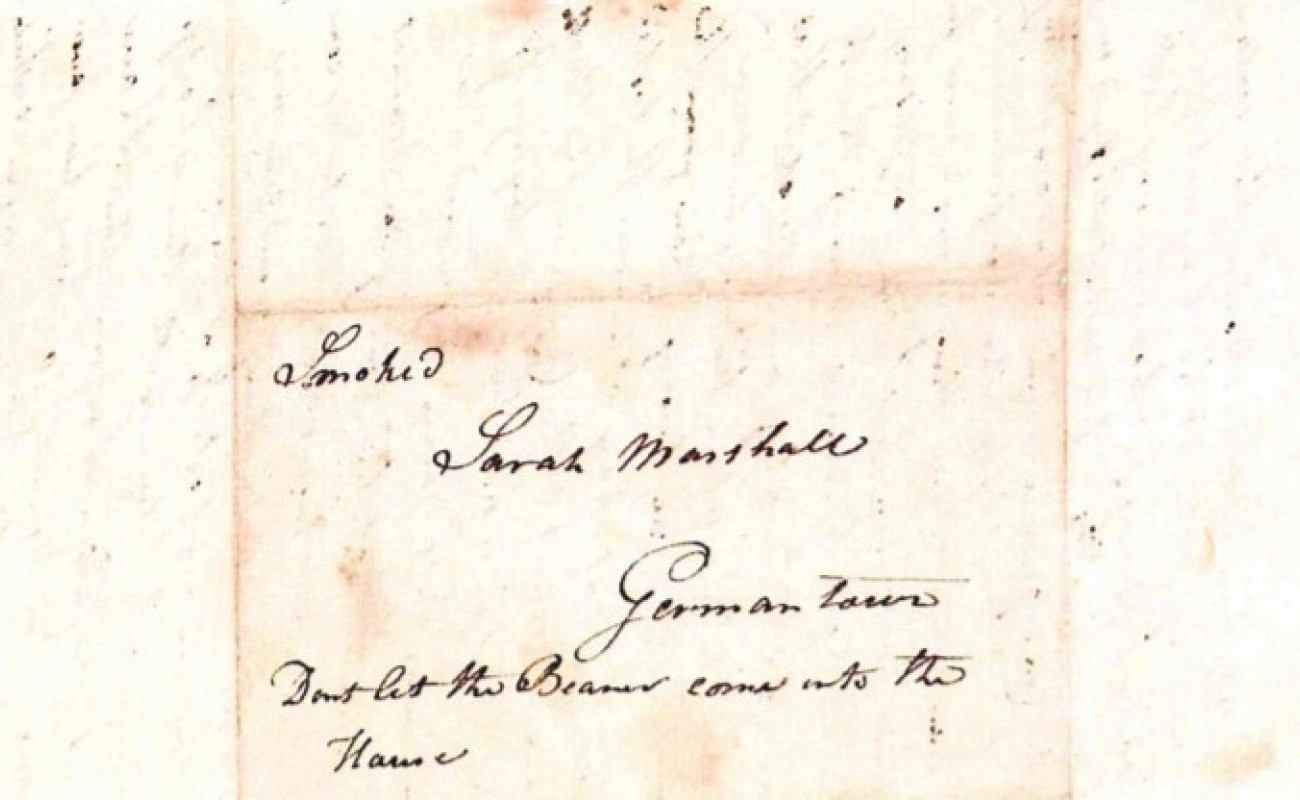 Smoked
Sarah Marshall
Germantown
Dont let the Bearer come into the
House